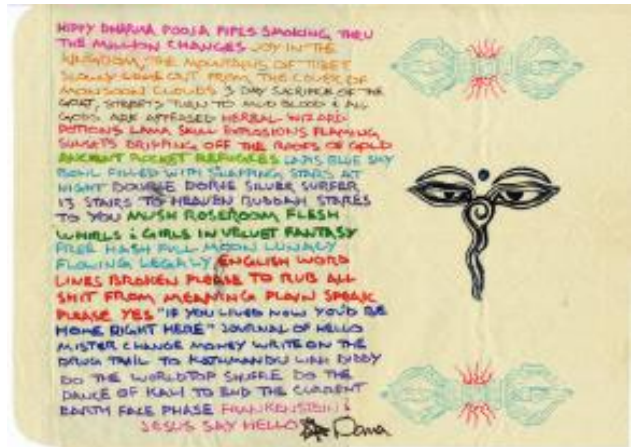 HIPPY DHARMA POOJA PIPES SMOKING THRU
THE MILLION CHANGES JOY IN THE
KINGDOM, THE MOUNTAINS OF TIBET
SLOWLY COME OUT FROM THE COVER OF
MONSOON CLOUDS 3 DAY SACRIFICE OF THE
GOAT, STREETS TURN TO MUD BLOOD & ALL
GODS ARE APPEASED HERBAL WIZARD
POTIONS LAMA SKULL EXPLOSIONS FLAMING
SUNSETS DRIPPING OFF THE ROOFS OF GOLD
ANCIENT ROCKET REFUGEES LAPIS BLUE SKY
BOWL FILLED WITH STARS AT
NIGHT DOUBLE DORJE SILVER SURFER
13 STAIRS TO HEAVEN BUDDAH STARES
TO YOU MUSH ROSEROOM FLESH
WHIRLS & GIRLS IN VELVET FANTASY
FREE HASH FULL MOON LUNACY
FLOWING LEGALY ENGLISH WORD
LINES BROKEN PLEASE TO RUB ALL
SHIT FROM MEANING PLAIN SPEAK
PLEASE YES "IF YOU LIVED NOW YOU'D BE
HOME RIGHT HERE" JOURNAL OF HELLO
MISTER CHANGE MONEY WRITE ON THE
DRUG TRAIL TO KATHMANDU DIDDY
DO THE WORLDTOP SHUFFLE DO THE
DANCE OF KALI TO END THE CURRENT
EARTH FACE PHASE FRANKENSTEIN &
JESUS SAY HELLO Dana